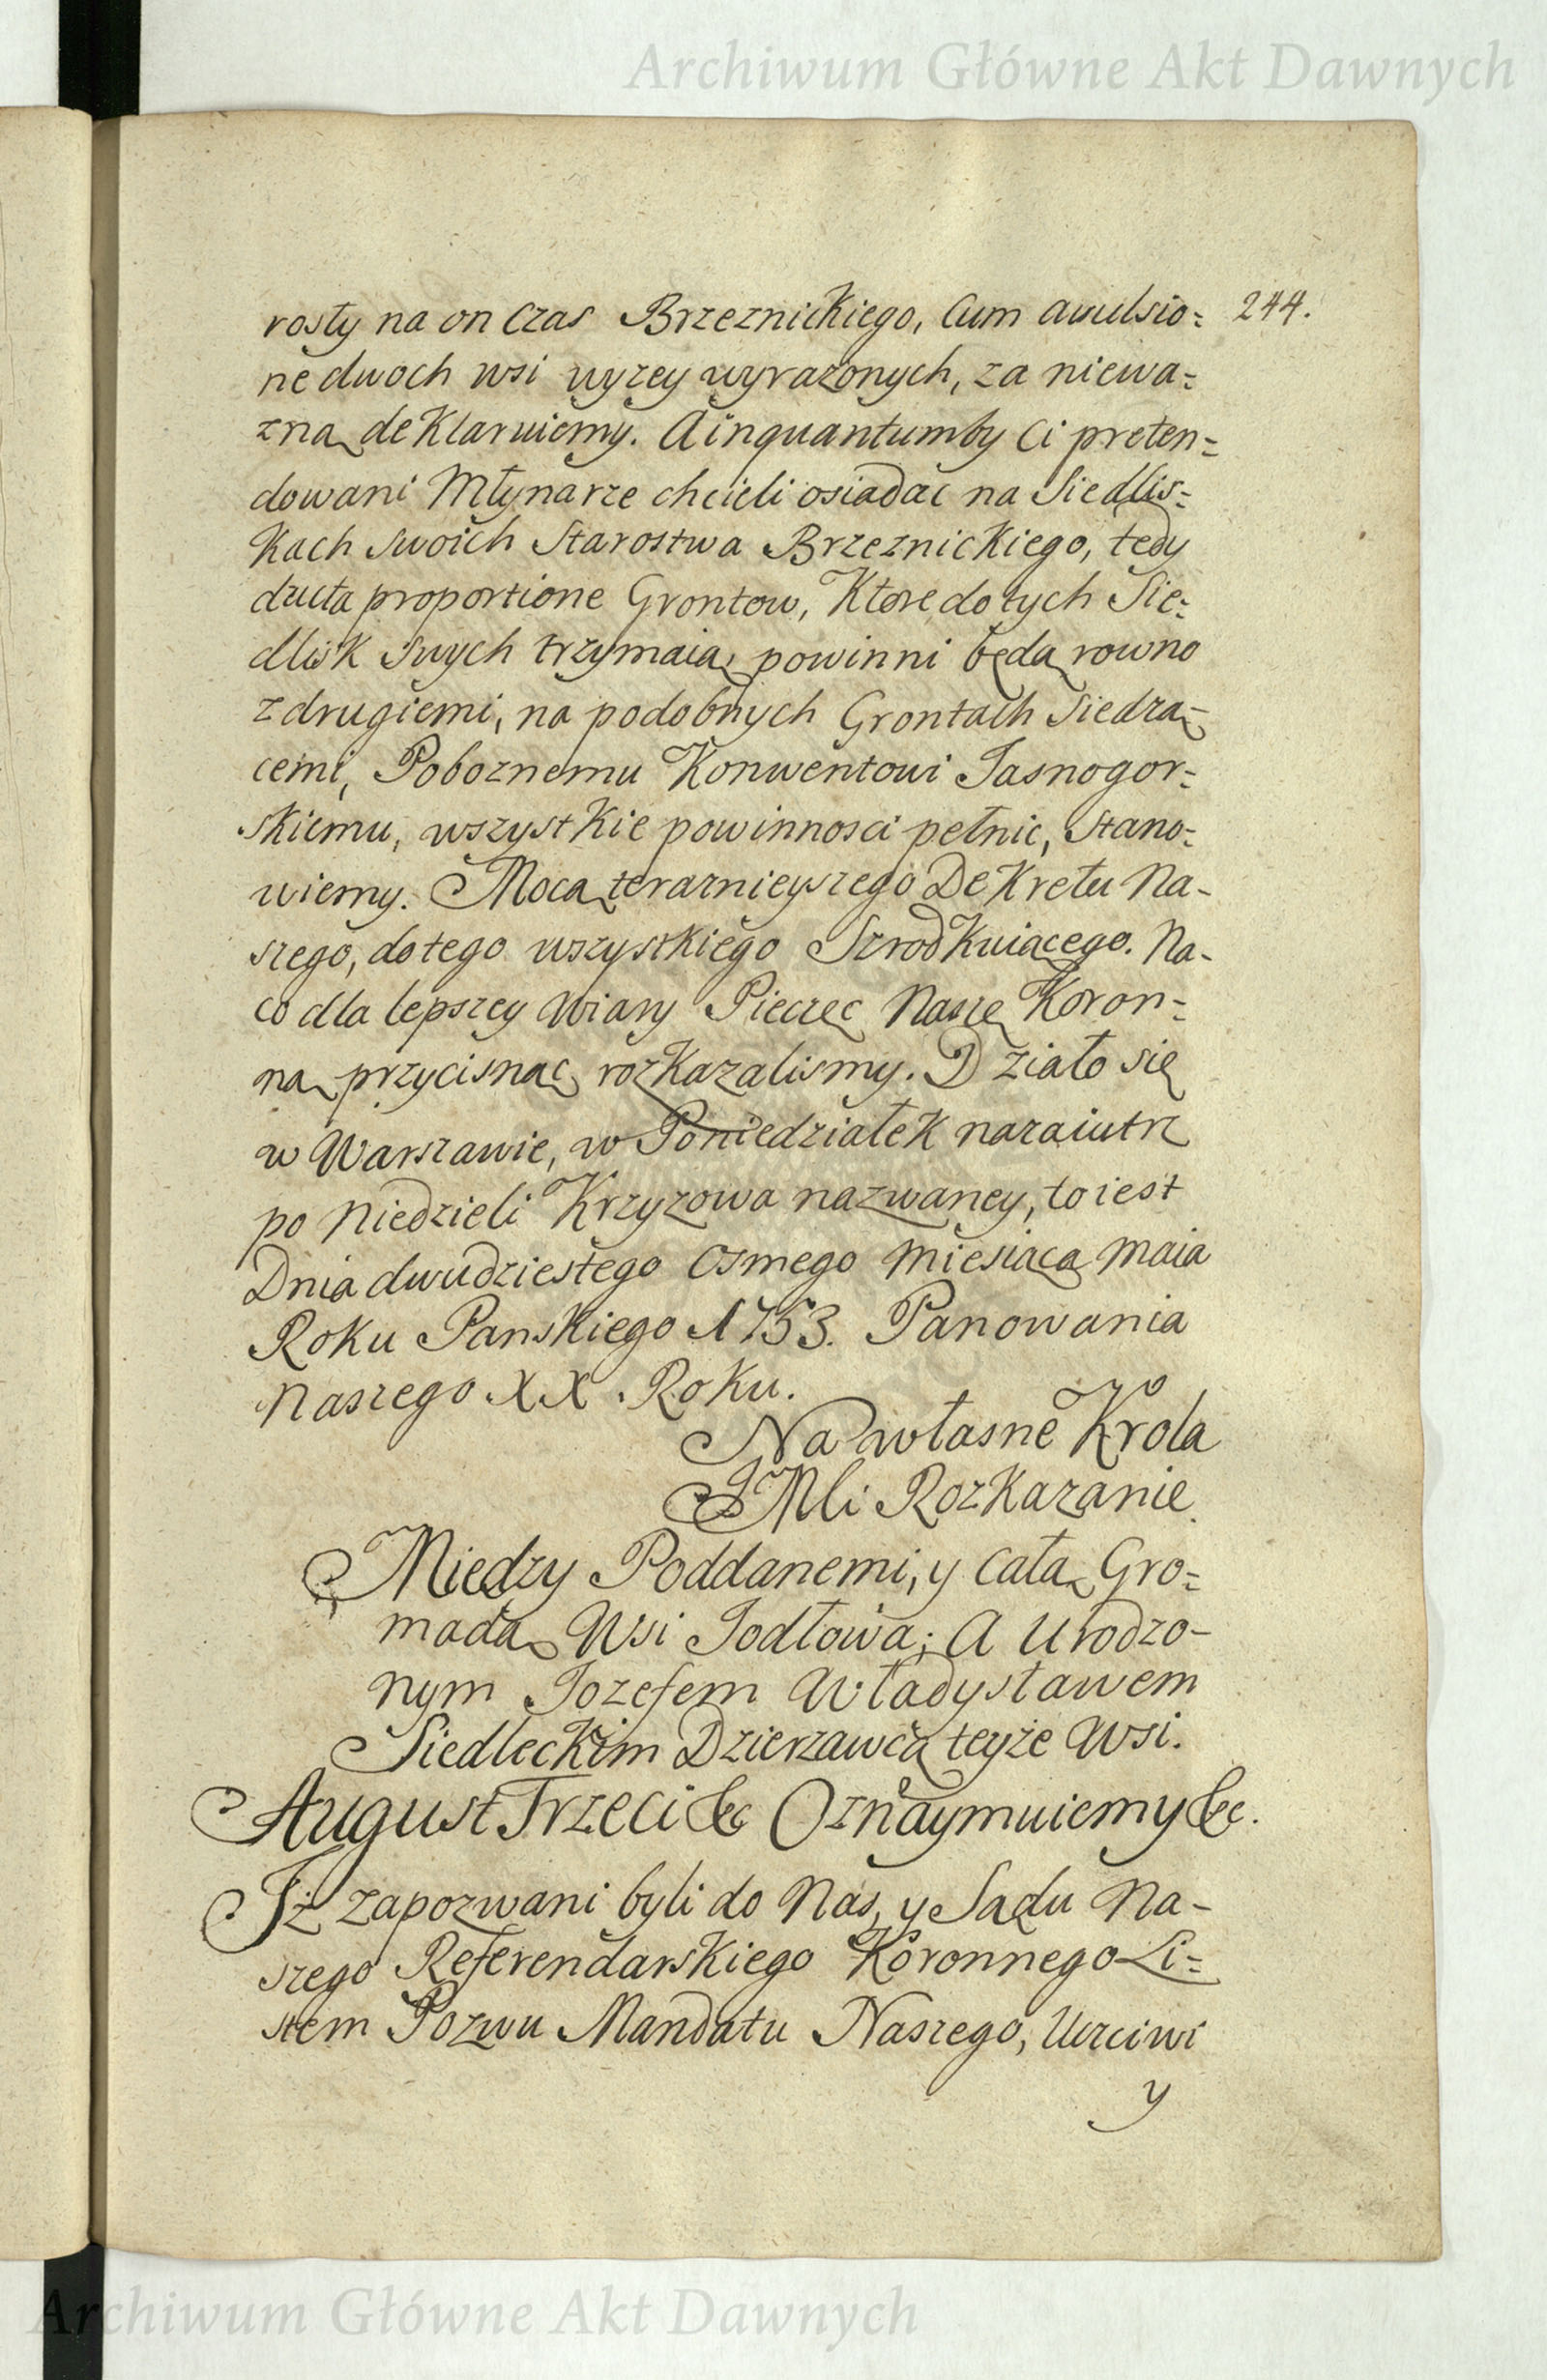 Archiwum Główne Akt Dawnych
244.
rosty na on czas Brzeznickiego, Cum avulsio=
ne dwoch wsi wyzey wyrazonych, za niewa=
zną deklaruiemy. A inquantumby Ci preten=
dowani Młynarze chcieli osiadac na Siedlis=
kach swoich Starostwa Brzeznickiego, tedy
ducta proportione Grontow, Ktore do tych Sie=
dlisk swych trzymaią, powinni będą rowno
z drugiemi, na podobnych Grontach Siedzą=
cemi, Poboznemu Konwentowi Jasnogor=
skiemu, wszystkie powinnosci pełnic, stano=
wiemy. Mocą teraznieyszego Dekretu Na-
szego, do tego wszystkiego Szrodkuiącego. Na-
co dla lepszey Wiary Pieczęc Naszę Koron=
ną przycisnąc rozkazalismy. Działo się
w Warszawie, w Poniedziałek nazaiutrz
po Niedzieli Krzyzowa nazwaney, to iest
Dnia dwudziestego Osmego Miesiąca Maia
Roku Panskiego 1753. Panowania
Naszego XX Roku.
Na własne Krola
JMci Rozkazanie.
Między Poddanemi, y całą Gro=
madą Wsi Jodłowa; A Urodzo-
nym Jozefem Władysławem
Siedleckim Dzierzawcą teyże Wsi.
August Trzeci &c Oznaymuiemy &c.
Jż zapozwani byli do Nas, y Sądu Na-
szego Referendarskiego Koronnego Li=
stem Pozwu Mandatu Naszego, Uczciwi
y
Archiwum Główne Akt Dawnych